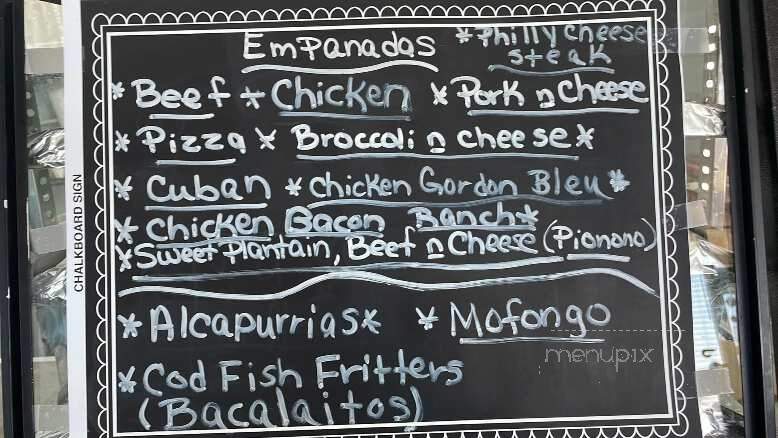 Empanadas *Philly Cheese
steak
*Beef *Chicken *Pork n Cheese
*Pizza * Broccoli n cheese*
*Cuban *Chicken Gordon Bleu*
*Chicken Bacon Ranch*
*Sweet Plantain, Beef n Cheese (Pionono)
*Alcapurrias* *Mofongo
*Cod Fish Fritters
(Bacalaitos)
CHALKBOARD SIGN
menupix